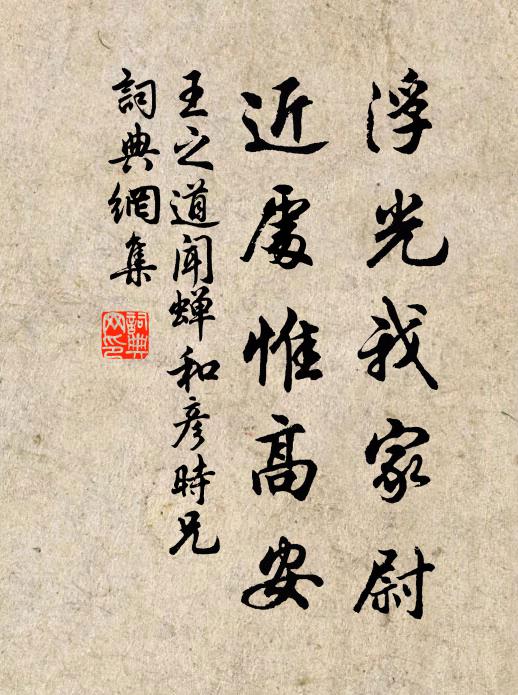 浮光我家尉
近處惟高安
王之道闻蝉和彦時兄
詞典網集
詞典网印